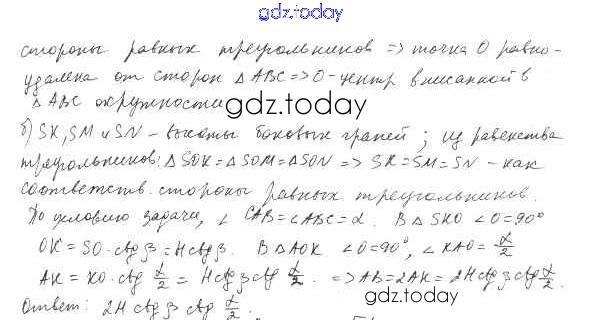 gdz.today
стороны равных треугольников => точка О равно-
удалена от сторон △ABC => О - центр вписанной в
△ABC окружности.
gdz.today
б) SK, SM и SN - высоты боковых граней; из равенства
треугольников: △SOK = △SOM = △SON => SK = SM = SN - как
соответств. стороны равных треугольников.
По условию задачи, ∠CAB = ∠ABC = α. В △SKO ∠O = 90°
OK = SO · ctg β = H ctg β. В △AOK ∠O = 90°, ∠KAO = α/2
AK = KO · ctg α/2 = H ctg β ctg α/2. => AB = 2AK = 2H ctg β ctg α/2.
gdz.today
Ответ: 2H ctg β ctg α/2.